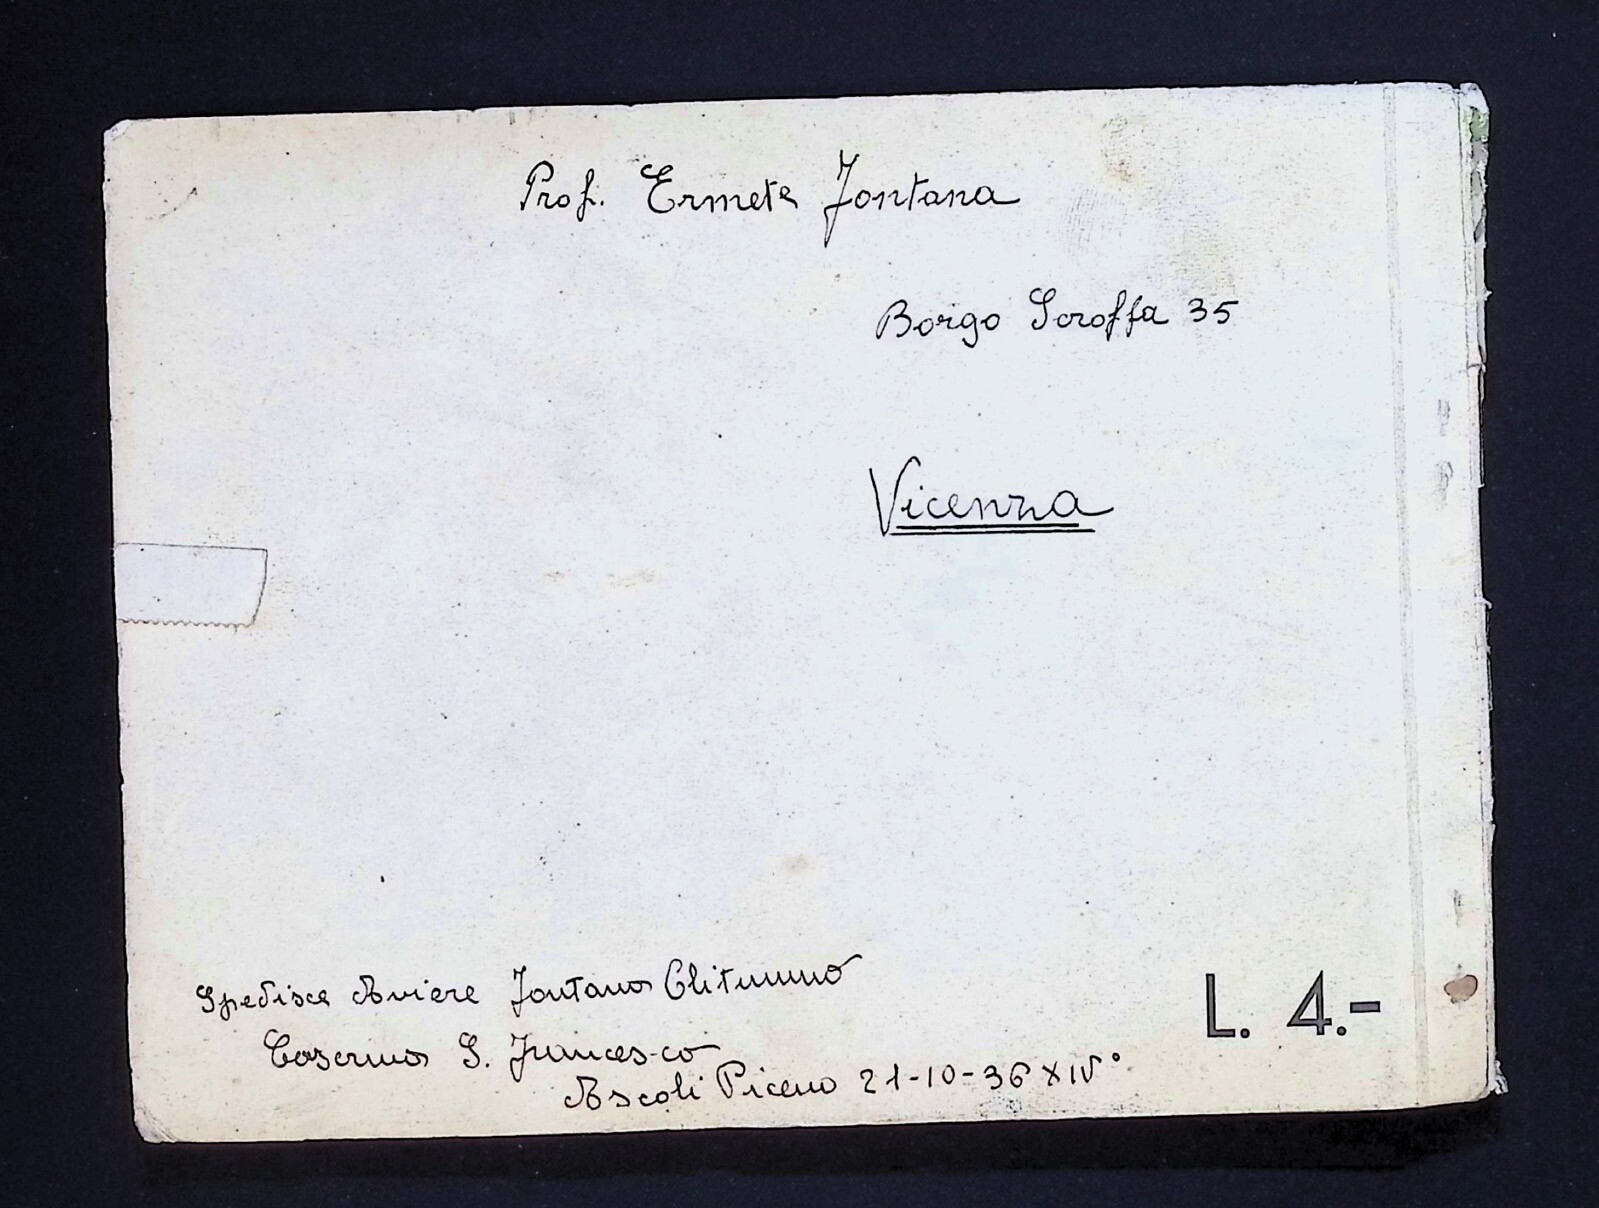 Prof. Ermete Fontana
Borgo Scroffa 35
Vicenza
Spedisce Aviere Fontana Clitunno
Caserma S. Francesco
Ascoli Piceno 21-10-36 XIV°
L. 4.-